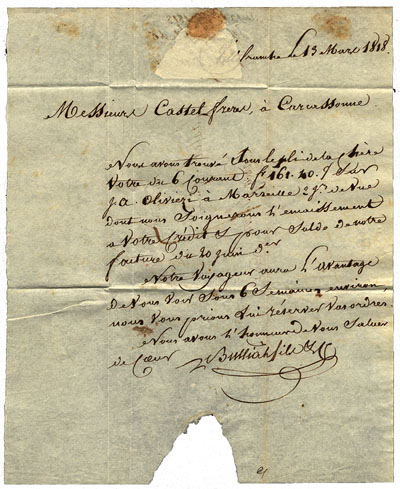 le 13 Mars 1818.
Messieurs Castel freres, à Carcassonne
Nous avons trouvé Sous le pli de la Chère
Votre du 6 Courant, f 161.40. Sur
J.A. à Marseille de Vue
dont nous Soignerons l'encaissement
a Votre Crédit pour Solde de notre
facture du 20 Juin dr
Notre Voyageur aura l'avantage
de Vous Voir Sous 6 Semaines environ,
nous Vous prions lui réserver Vos ordres.
Nous avons l'honneur de Vous Saluer
de Cœur